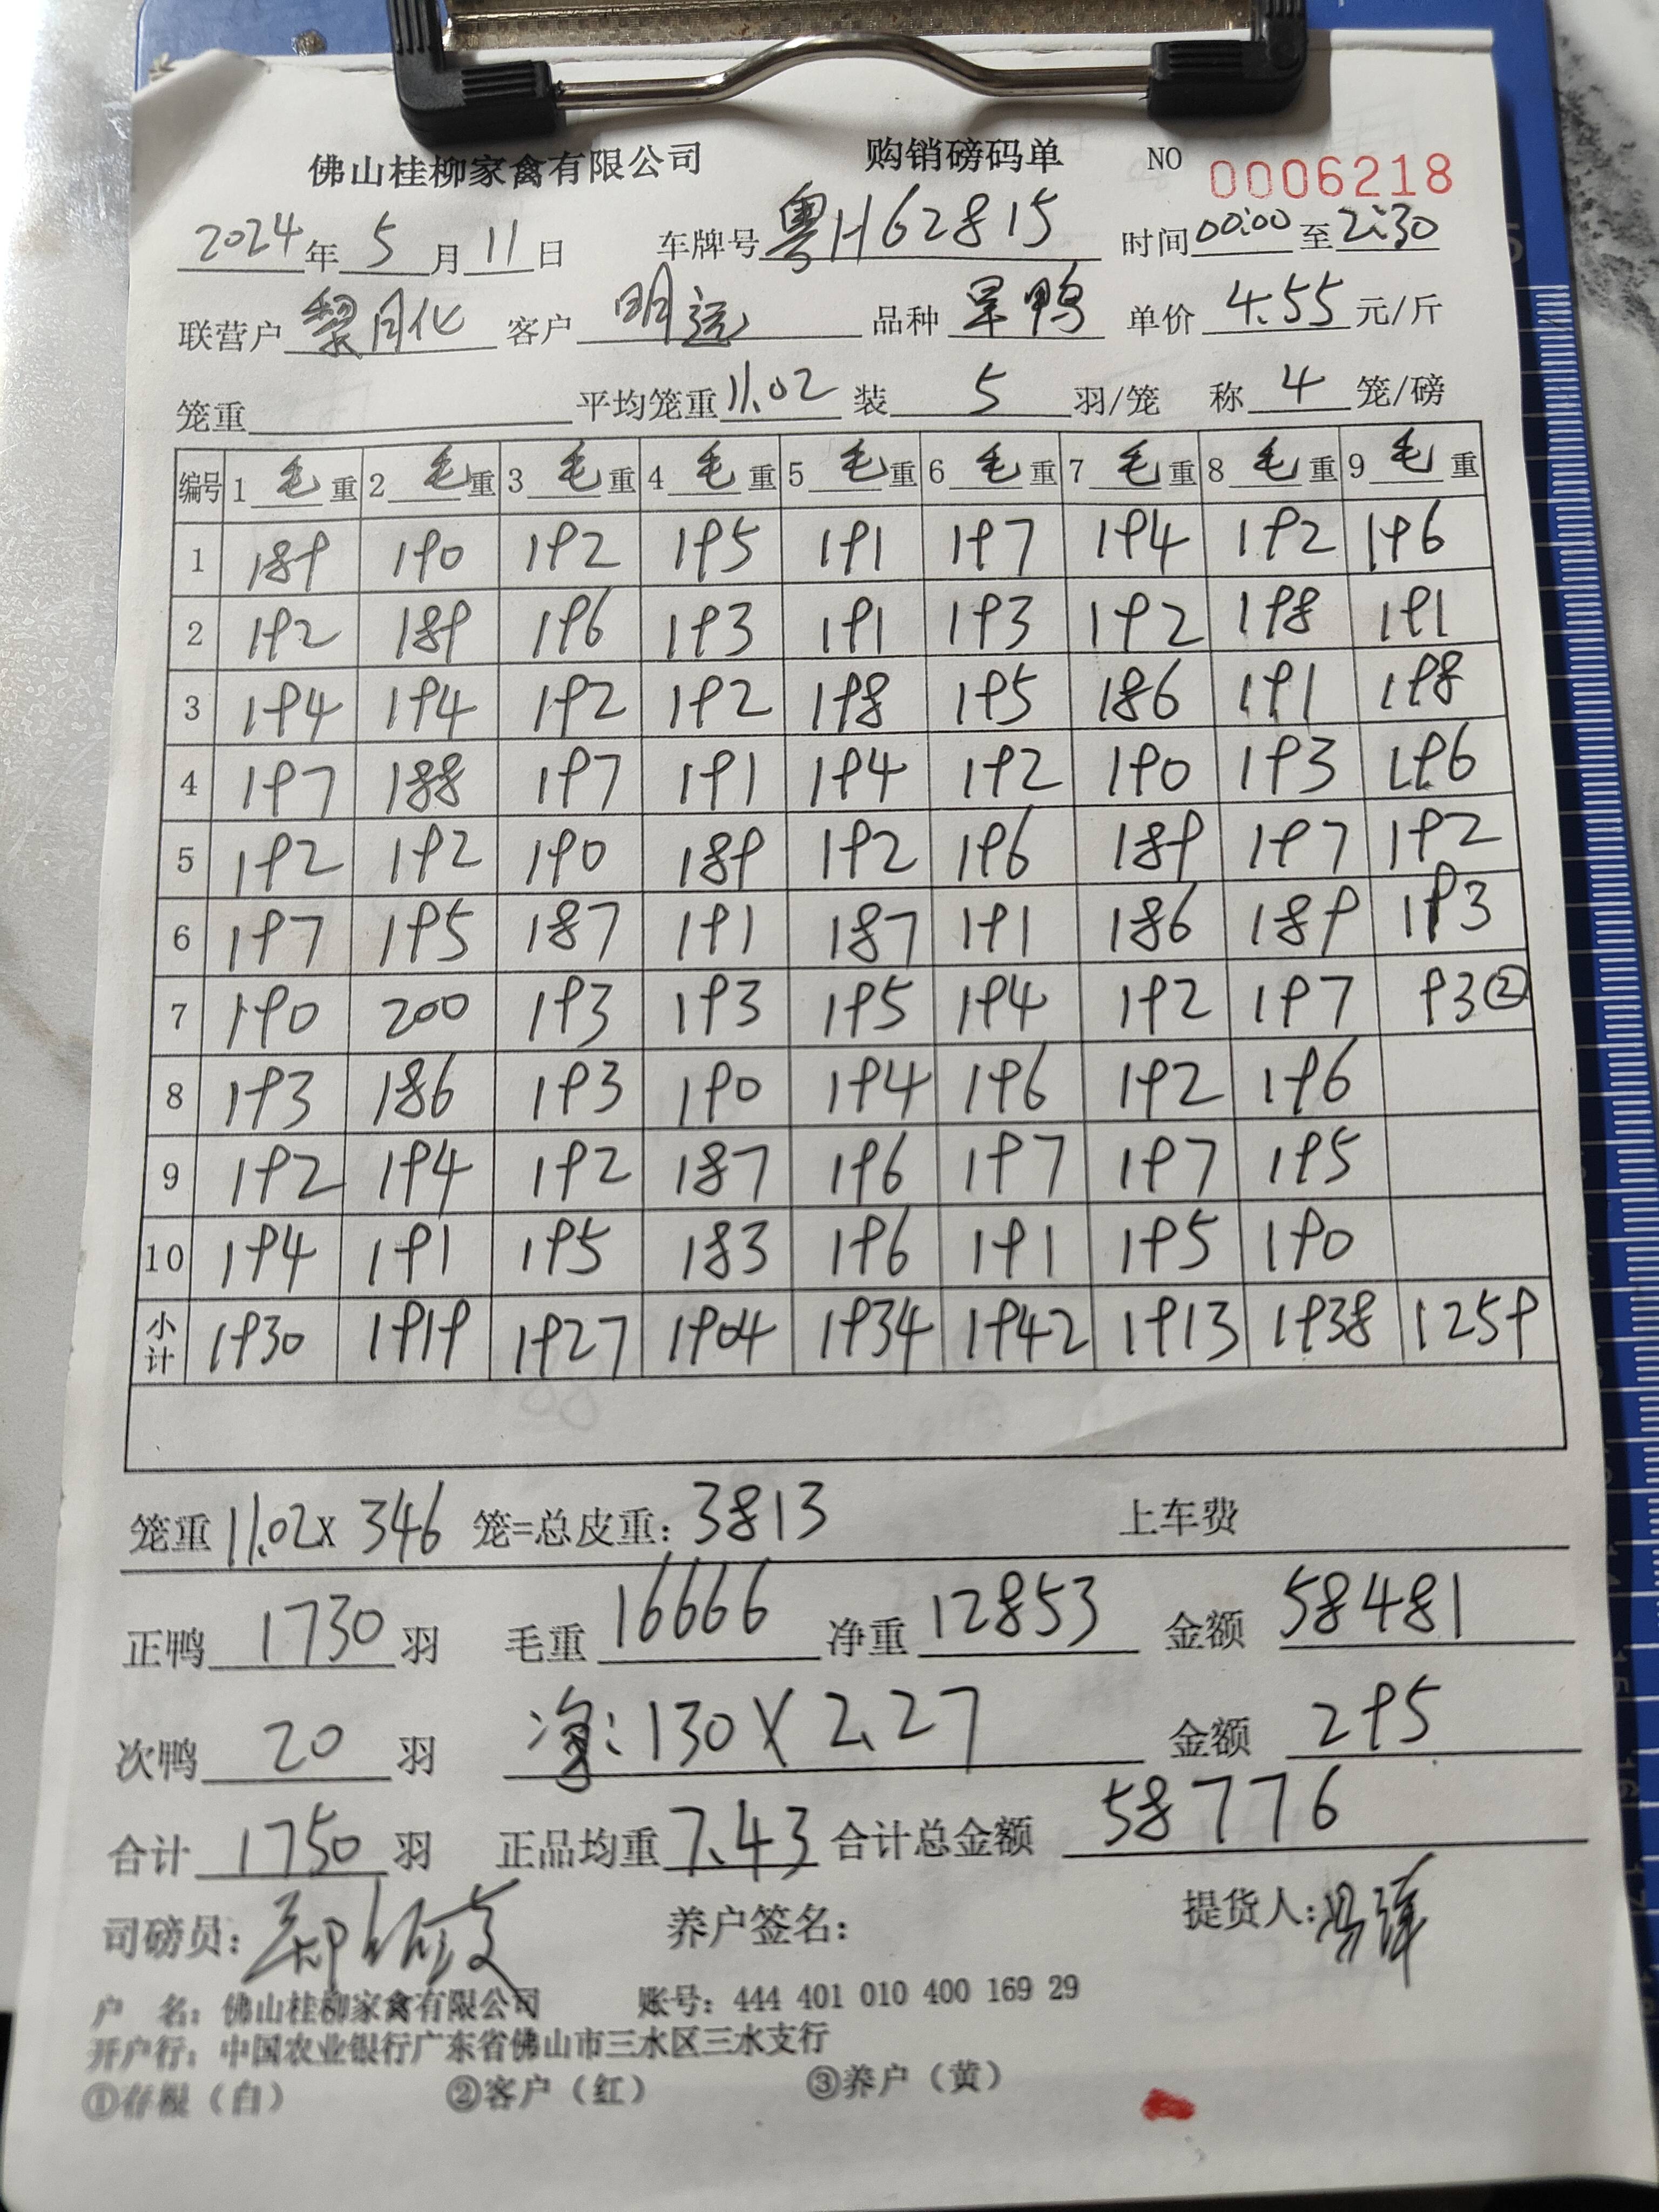 佛山桂柳家禽有限公司 购销磅码单 NO 0006218
2024年5月11日 车牌号粤H62815 时间00:00至2:30
联营户黎月化 客户明远 品种旱鸭 单价4.55元/斤
笼重 平均笼重11.02 装5羽/笼 称4笼/磅
编号 1毛重 2毛重 3毛重 4毛重 5毛重 6毛重 7毛重 8毛重 9毛重
1 189 190 192 195 191 197 194 192 196
2 192 189 196 193 191 193 192 198 191
3 194 194 192 192 198 195 186 191 198
4 197 188 197 191 194 192 190 193 196
5 192 192 190 189 192 196 189 197 192
6 197 195 187 191 187 191 186 189 193
7 190 200 193 193 195 194 192 197 93②
8 193 186 193 190 194 196 192 196
9 192 194 192 187 196 197 197 195
10 194 191 195 183 196 191 195 190
小计 1930 1919 1927 1904 1934 1942 1913 1938 1259
笼重11.02x 346 笼=总皮重：3813 上车费
正鸭1730羽 毛重16666 净重12853 金额58481
次鸭20羽 净：130X2.27 金额295
合计1750羽 正品均重7.43 合计总金额58776
司磅员： 养户签名： 提货人：
户 名：佛山桂柳家禽有限公司 账号：444 401 010 400 169 29
开户行：中国农业银行广东省佛山市三水区三水支行
①存根（白） ②客户（红） ③养户（黄）